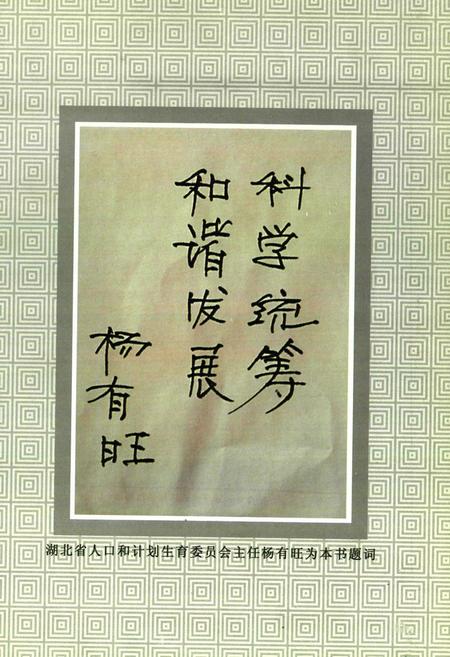 科学统筹
和谐发展
杨有旺
湖北省人口和计划生育委员会主任杨有旺为本书题词